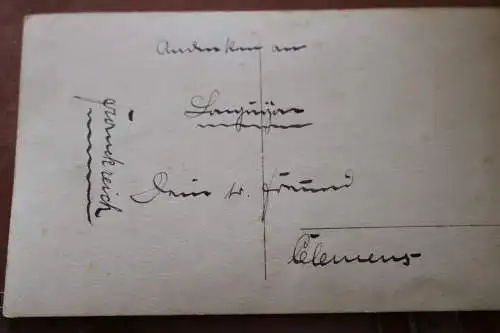 Andenken an
Dein tr. Freund
Clemens
Frankreich